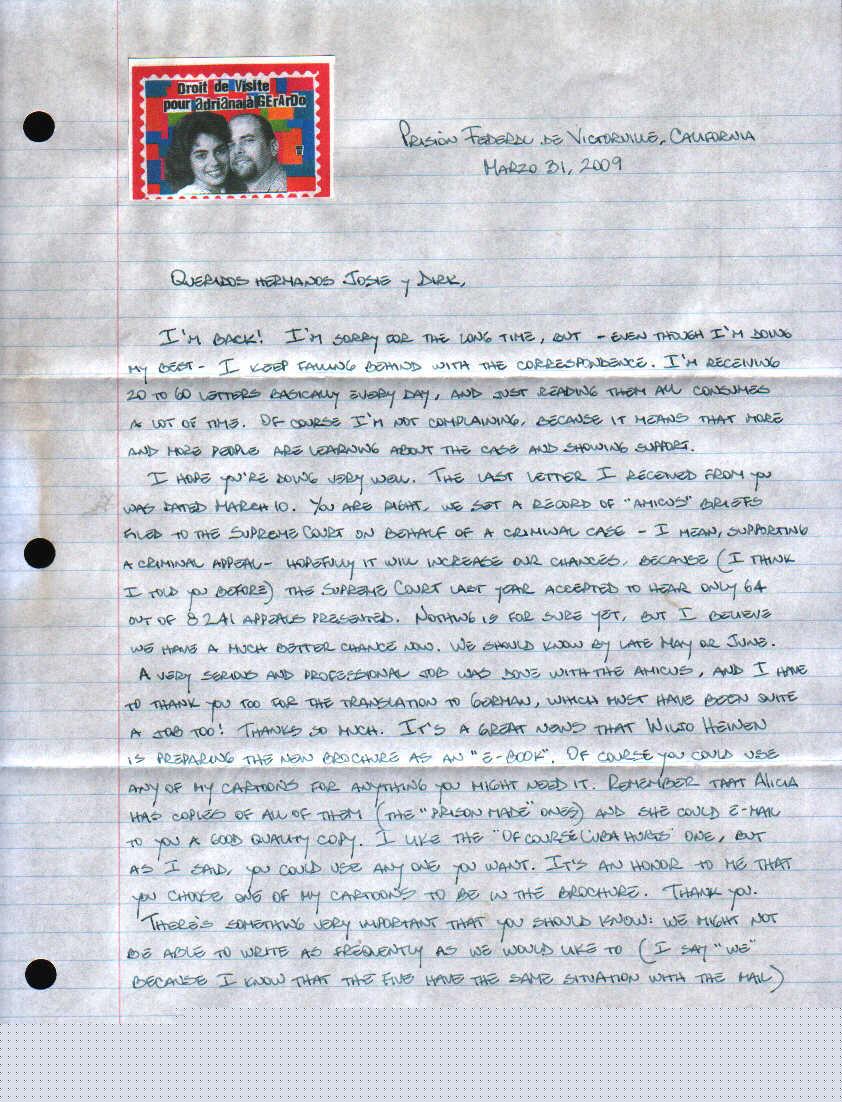 Droit de Visite
pour adriana à GErArDo
PRISIÓN FEDERAL DE VICTORVILLE, CALIFORNIA
MARZO 31, 2009
QUERIDOS HERMANOS JOSIE Y DIRK,
I'M BACK! I'M SORRY FOR THE LONG TIME, BUT - EVEN THOUGH I'M DOING
MY BEST - I KEEP FALLING BEHIND WITH THE CORRESPONDENCE. I'M RECEIVING
20 TO 60 LETTERS BASICALLY EVERY DAY, AND JUST READING THEM ALL CONSUMES
A LOT OF TIME. OF COURSE I'M NOT COMPLAINING, BECAUSE IT MEANS THAT MORE
AND MORE PEOPLE ARE LEARNING ABOUT THE CASE AND SHOWING SUPPORT.
I HOPE YOU'RE DOING VERY WELL. THE LAST LETTER I RECEIVED FROM YOU
WAS DATED MARCH 10. YOU ARE RIGHT, WE SET A RECORD OF "AMICUS" BRIEFS
FILED TO THE SUPREME COURT ON BEHALF OF A CRIMINAL CASE - I MEAN, SUPPORTING
A CRIMINAL APPEAL - HOPEFULLY IT WILL INCREASE OUR CHANCES, BECAUSE (I THINK
I TOLD YOU BEFORE) THE SUPREME COURT LAST YEAR ACCEPTED TO HEAR ONLY 64
OUT OF 8241 APPEALS PRESENTED. NOTHING IS FOR SURE YET, BUT I BELIEVE
WE HAVE A MUCH BETTER CHANCE NOW. WE SHOULD KNOW BY LATE MAY OR JUNE.
A VERY SERIOUS AND PROFESSIONAL JOB WAS DONE WITH THE AMICUS, AND I HAVE
TO THANK YOU TOO FOR THE TRANSLATION TO GERMAN, WHICH MUST HAVE BEEN QUITE
A JOB TOO! THANKS SO MUCH. IT'S A GREAT NEWS THAT WILJO HEINEN
IS PREPARING THE NEW BROCHURE AS AN "E-BOOK". OF COURSE YOU COULD USE
ANY OF MY CARTOONS FOR ANYTHING YOU MIGHT NEED IT. REMEMBER THAT ALICIA
HAS COPIES OF ALL OF THEM (THE "PRISON MADE" ONES) AND SHE COULD E-MAIL
TO YOU A GOOD QUALITY COPY. I LIKE THE "OF COURSE CUBA HURTS" ONE, BUT
AS I SAID, YOU COULD USE ANY ONE YOU WANT. IT'S AN HONOR TO ME THAT
YOU CHOOSE ONE OF MY CARTOONS TO BE IN THE BROCHURE. THANK YOU.
THERE'S SOMETHING VERY IMPORTANT THAT YOU SHOULD KNOW: WE MIGHT NOT
BE ABLE TO WRITE AS FREQUENTLY AS WE WOULD LIKE TO (I SAY "WE"
BECAUSE I KNOW THAT THE FIVE HAVE THE SAME SITUATION WITH THE MAIL)